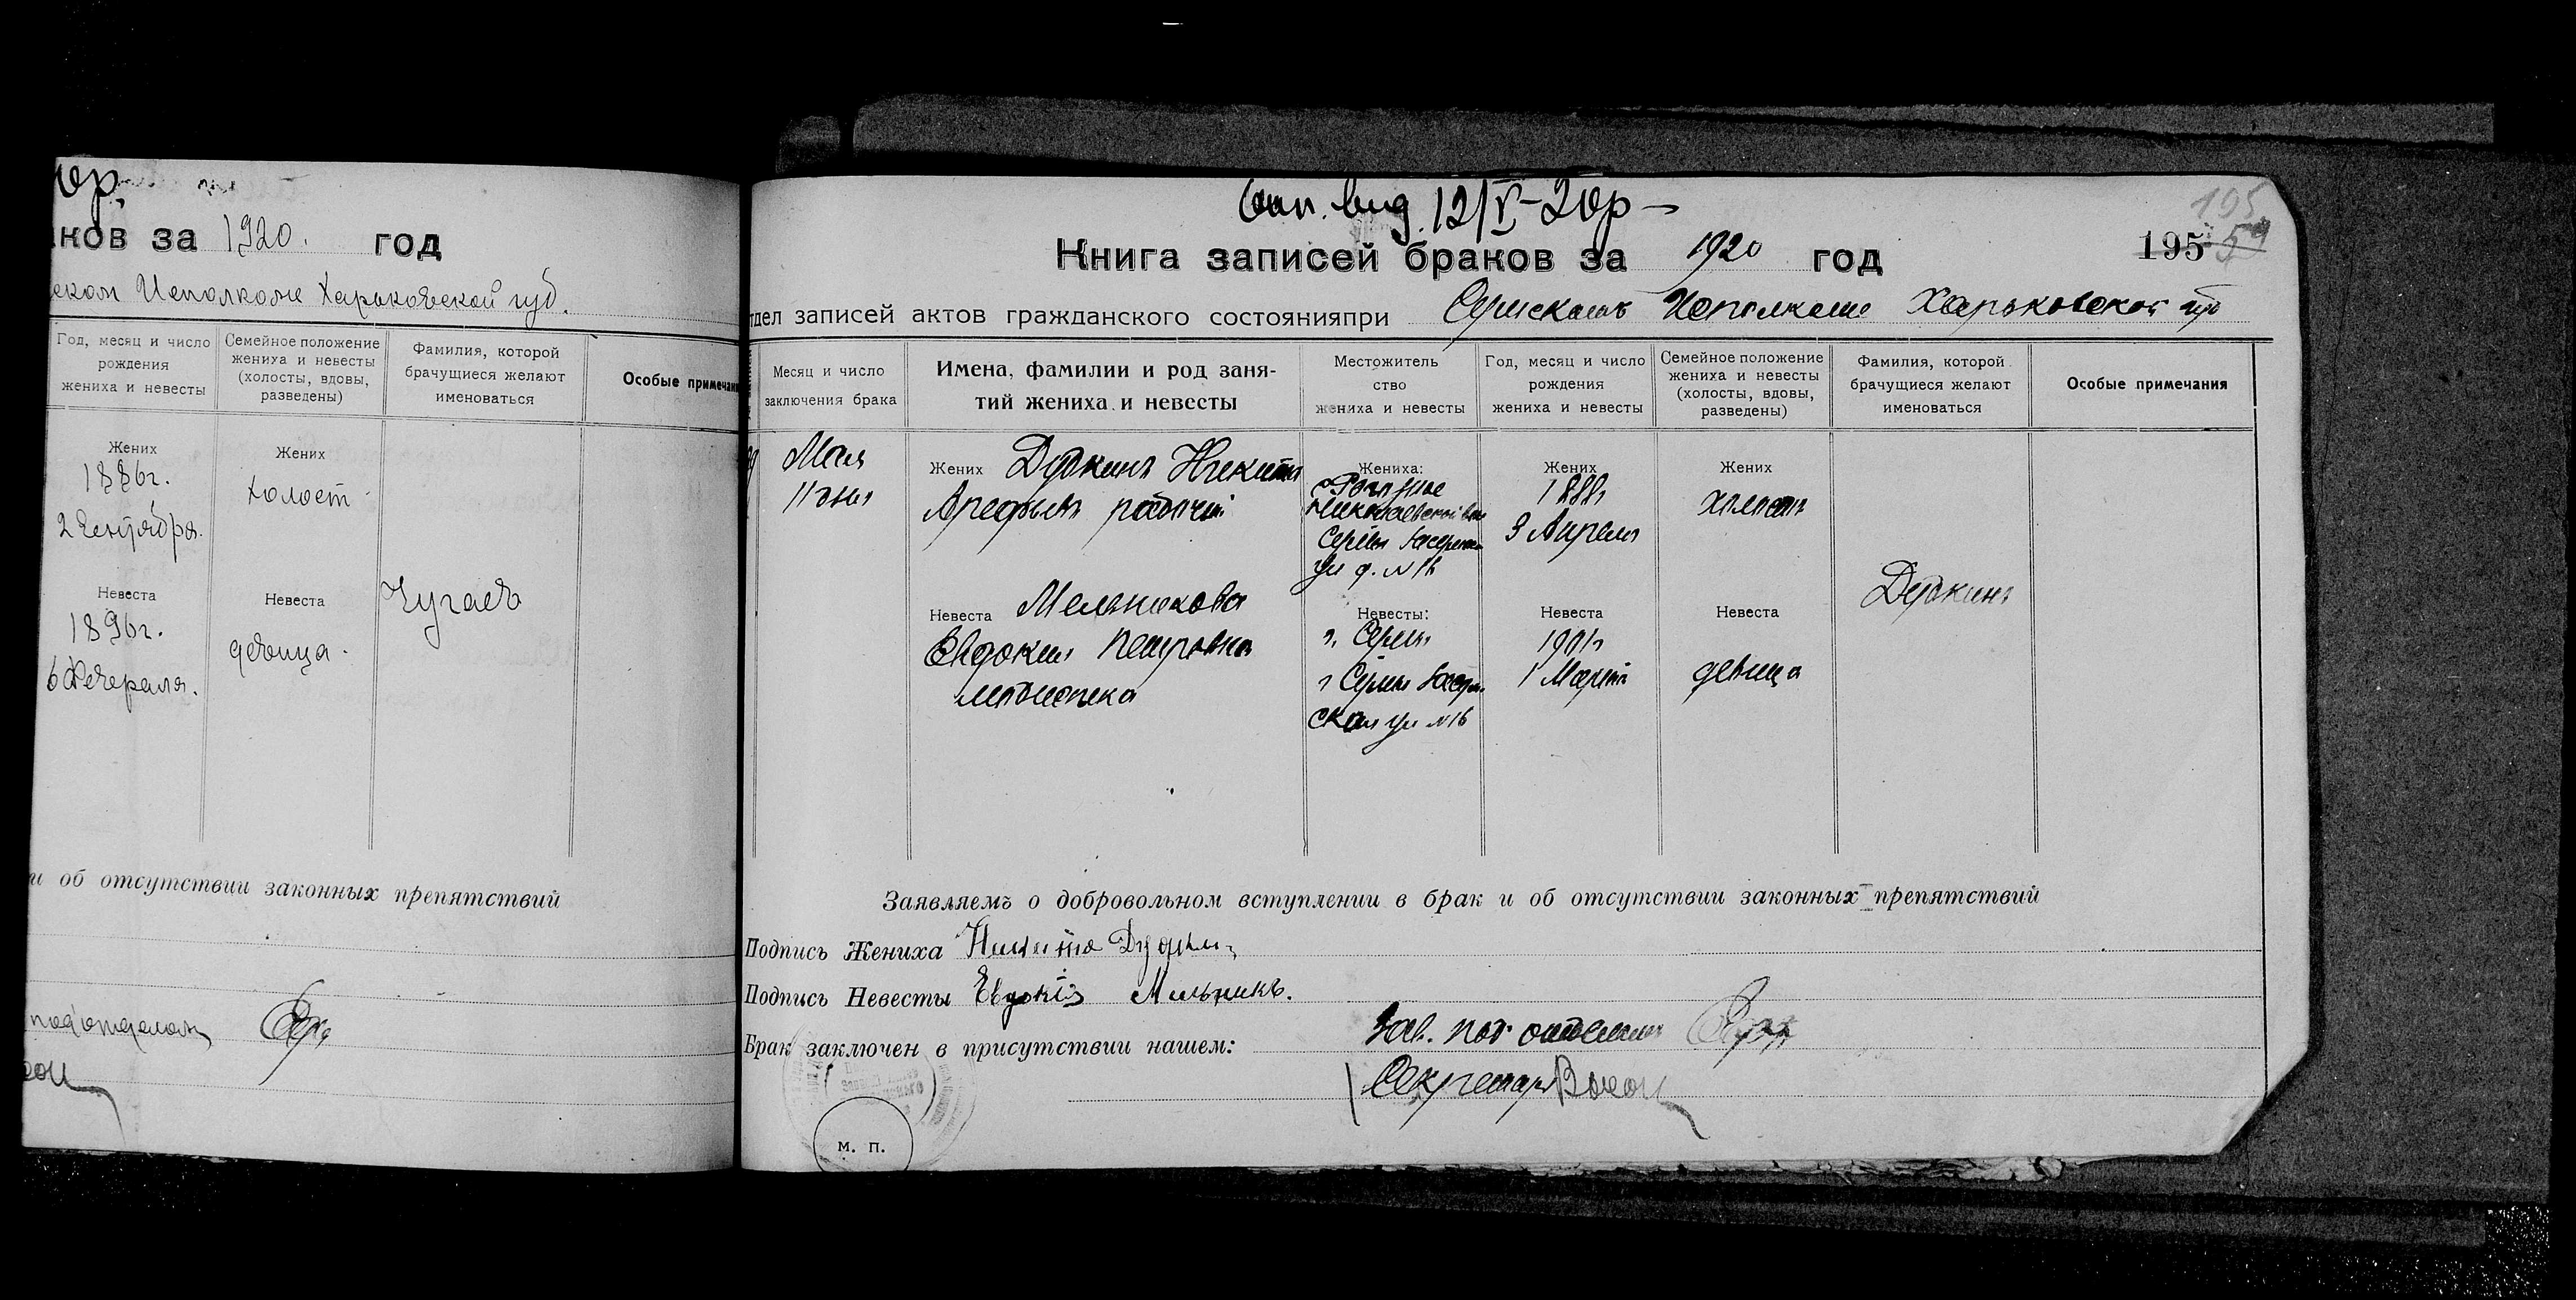 ков за 1920. год
Исполкоме Харьковской губ.
Год, месяц и число
рождения
жениха и невесты
Семейное положение
жениха и невесты
(холосты, вдовы,
разведены)
Фамилия, которой
брачущиеся желают
именоваться
Особые примечани
Жених
1886г.
2 Сентября.
Жених
холост
Невеста
1896г.
6 Февраля.
Невеста
девица.
Чугаев
и об отсутствии законных препятствий
подотделом
вид. 12/V-20р
Книга записей браков за 1920 год
195
195
тдел записей актов гражданского состоянияпри Сумском Исполкоме Харьковской губ
Месяц и число
заключения брака
Имена, фамилии и род заня-
тий жениха и невесты
Местожитель
ство
жениха и невесты
Год, месяц и число
рождения
жениха и невесты
Семейное положение
жениха и невесты
(холосты, вдовы,
разведены)
Фамилия, которой
брачущиеся желают
именоваться
Особые примечания
Мая
11 дня
Жених Дудкинъ Никита
Арефьевъ рабочий
Жениха:
Николаевской вол
Сумы
ул д. №16
Жених
1888г
3 Апреля
Жених
холостъ
Невеста Мельникова
Евдокия Петровна
Невесты:
г. Сумы
г Сумы
ская ул №16
Невеста
1901г
1 Марта
Невеста
девица
Дудкинъ
Заявляемъ о добровольном вступлении в брак и об отсутствии законных препятствий
Подпись Жениха Никита Дудкин
Подпись Невесты Евдокія Мельникъ.
Брак заключен в присутствии нашем: Зав. под отделом
Секретарь
м. п.